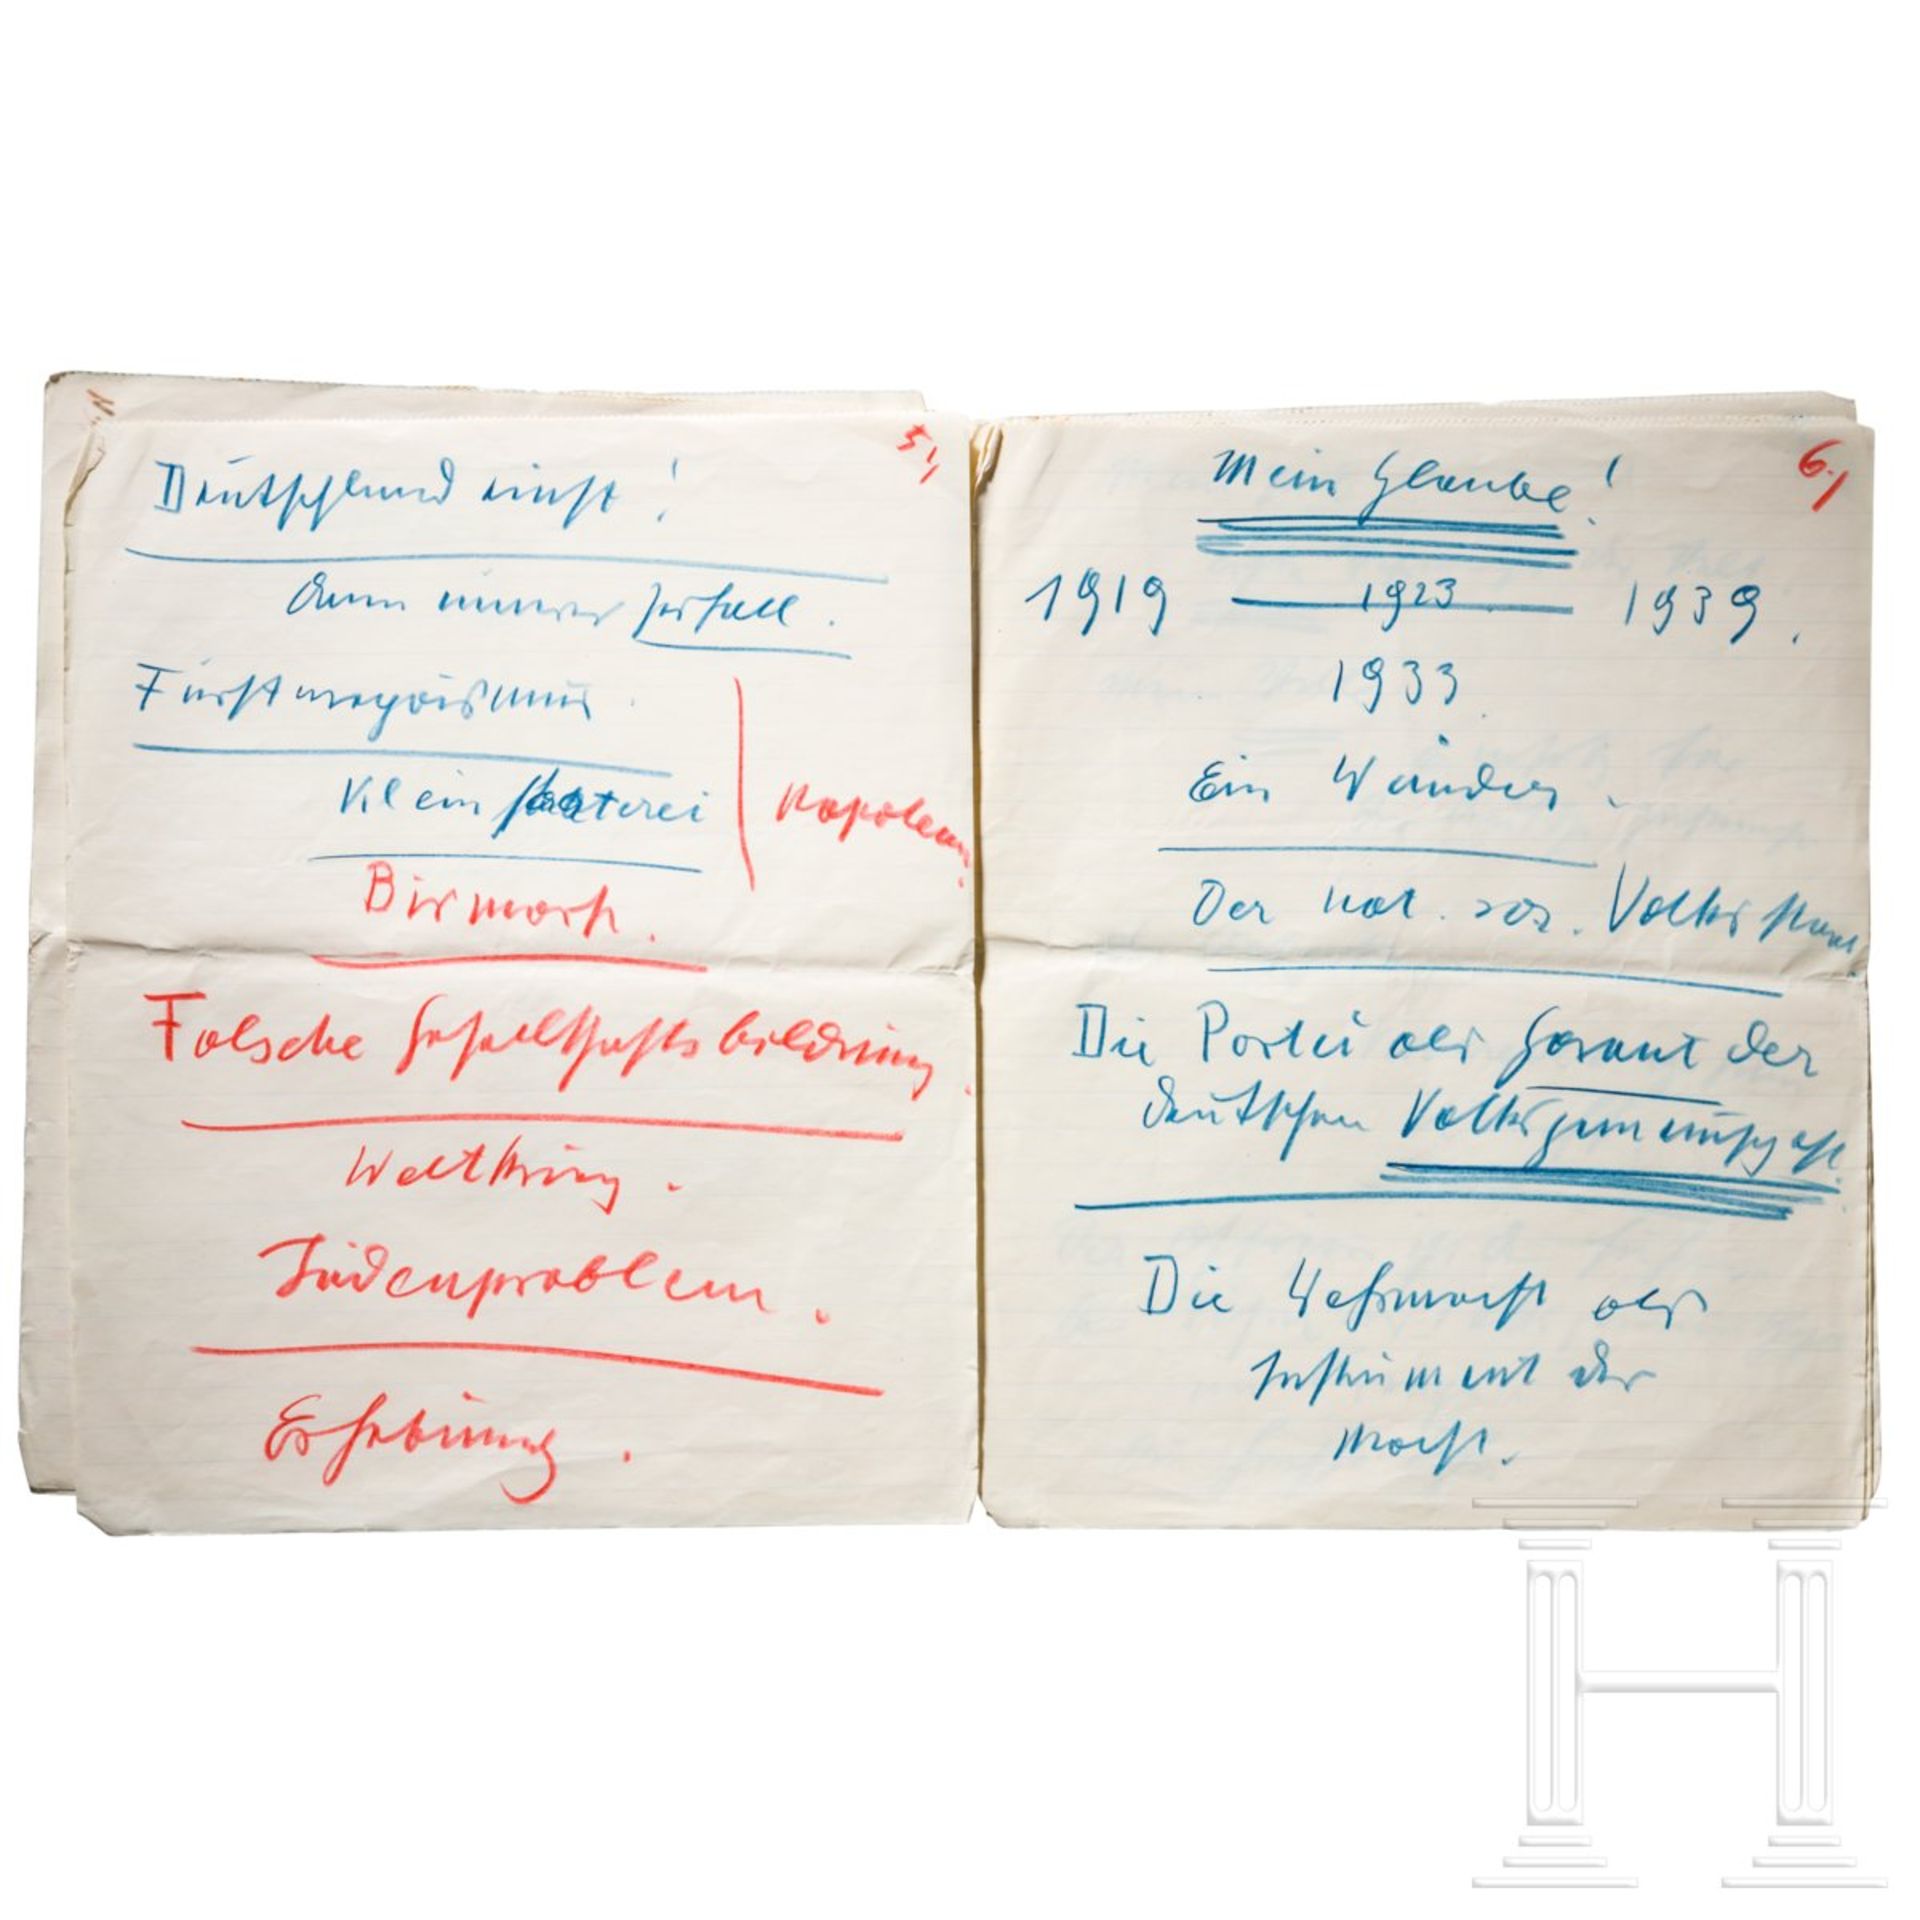 5.)
Deutschland einst!
dann innerer Zerfall.
Fürstenegoismus.
Kleinstaaterei
Napoleon.
Bismark.
Falsche Gesellschaftsbildung.
Weltkrieg.
Judenproblem.
Erhebung.
6.)
Mein Glaube!
1919 1923 1939.
1933.
Ein Wunder.
Der nat. soz. Volksstaat.
Die Partei als Garant der
deutschen Volksgemeinschaft.
Die Wehrmacht als
Instrument der
Macht.
H